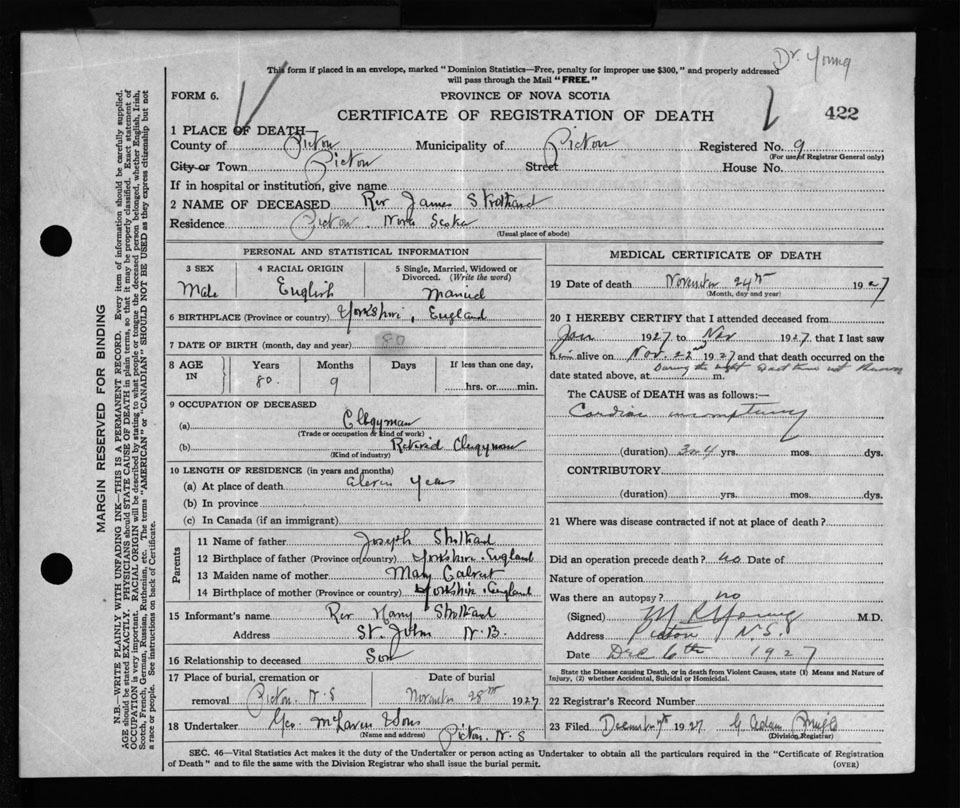 Dr Young
This form if placed in an envelope, marked "Dominion Statistics—Free, penalty for improper use $300," and properly addressed
will pass through the Mail "FREE."
FORM 6.
PROVINCE OF NOVA SCOTIA
CERTIFICATE OF REGISTRATION OF DEATH
422
1 PLACE OF DEATH—
County of Pictou Municipality of Pictou Registered No. 9
(For use of Registrar General only)
City or Town Pictou Street House No.
If in hospital or institution, give name
2 NAME OF DECEASED Rev James Strothard
Residence Pictou. Nova Scotia
(Usual place of abode)
PERSONAL AND STATISTICAL INFORMATION
3 SEX 4 RACIAL ORIGIN 5 Single, Married, Widowed or
Divorced. (Write the word)
Male English Married
6 BIRTHPLACE (Province or country) Yorkshire, England
7 DATE OF BIRTH (month, day and year) 80
8 AGE IN Years Months Days If less than one day,
80. 9 hrs. or min.
9 OCCUPATION OF DECEASED
(a) Clergyman
(Trade or occupation & kind of work)
(b) Retired Clergyman
(Kind of industry)
10 LENGTH OF RESIDENCE (in years and months)
(a) At place of death eleven years
(b) In province
(c) In Canada (if an immigrant)
Parents
11 Name of father Joseph Strothard
12 Birthplace of father (Province or country) Yorkshire. England
13 Maiden name of mother Mary Calvert
14 Birthplace of mother (Province or country) Yorkshire. England
15 Informant's name Rev Harry Strothard
Address St. John N.B.
16 Relationship to deceased Son
17 Place of burial, cremation or Date of burial
removal Pictou N.S November 28th 1927
18 Undertaker Geo. McLaren & Sons
(Name and address) Pictou. N.S
MEDICAL CERTIFICATE OF DEATH
19 Date of death November 24th 1927
(Month, day and year)
20 I HEREBY CERTIFY that I attended deceased from
Jan 1927 to Nov 1927, that I last saw
him alive on Nov. 22nd 1927 and that death occurred on the
date stated above, at During the night Exact time not known m.
The CAUSE of DEATH was as follows:—
Cardiac
(duration) 3 or 4 yrs. mos. dys.
CONTRIBUTORY
(duration) yrs. mos. dys.
21 Where was disease contracted if not at place of death?
Did an operation precede death? no Date of
Nature of operation
Was there an autopsy? no
(Signed) M R Young M.D.
Address Pictou N.S.
Date Dec 6th 1927
State the Disease causing Death, or in death from Violent Causes, state (1) Means and Nature of
Injury, (2) whether Accidental, Suicidal or Homicidal.
22 Registrar's Record Number
23 Filed December 7th 1927 G. Adam
(Division Registrar)
SEC. 46—Vital Statistics Act makes it the duty of the Undertaker or person acting as Undertaker to obtain all the particulars required in the "Certificate of Registration
of Death" and to file the same with the Division Registrar who shall issue the burial permit.
(OVER)
MARGIN RESERVED FOR BINDING
N.B.—WRITE PLAINLY WITH UNFADING INK—THIS IS A PERMANENT RECORD. Every item of information should be carefully supplied.
AGE should be stated EXACTLY. PHYSICIANS should STATE CAUSE OF DEATH in plain terms, so that it may be properly classified. Exact statement of
OCCUPATION is very important. RACIAL ORIGIN will be described by stating to what people or tongue the deceased person belonged, whether English, Irish,
Scotch, French, German, Russian, Ruthenian, etc. The terms "AMERICAN" or "CANADIAN" SHOULD NOT BE USED as they express citizenship but not
a race or people. See instructions on back of Certificate.